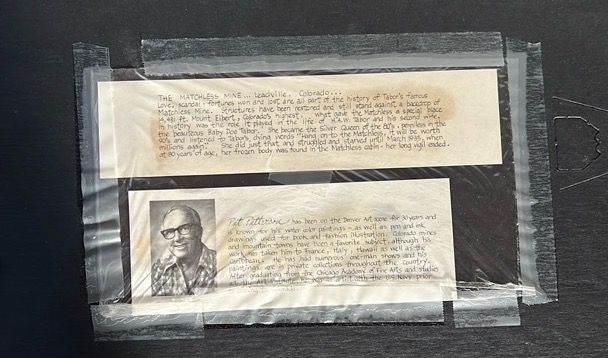 THE MATCHLESS MINE... Leadville, Colorado...
Love, scandal - fortunes won and lost are all part of the history of Tabor's famous
Matchless Mine. Structures have been restored and still stand against a backdrop of
14,431 ft. Mount Elbert, Colorado's highest. what gave the Matchless a special place
in history was the role it played in the life of H.A.W. Tabor and his second wife,
the beauteous Baby Doe Tabor. She became the Silver Queen of the 80's - penniless in the
90's and listened to Tabor's dying words "Hang on to the Matchless, it will be worth
millions again". She did just that and struggled and starved until March 1935, when
at 80 years of age, her frozen body was found in the Matchless cabin - her long vigil ended.
Pat has been on the Denver Art scene for 30 years and
is known for his water color paintings - as well as pen and ink
drawings used for book and fashion illustration. Colorado mines
and mountain towns have been a favorite subject, although his
work has taken him to France, Italy, Hawaii as well as the
Caribbean. He has had numerous one-man shows and his
paintings are in private collections throughout the country.
After graduating from the Chicago Academy of Fine Arts and studies
Art he was an artist with the U.S. Navy prior